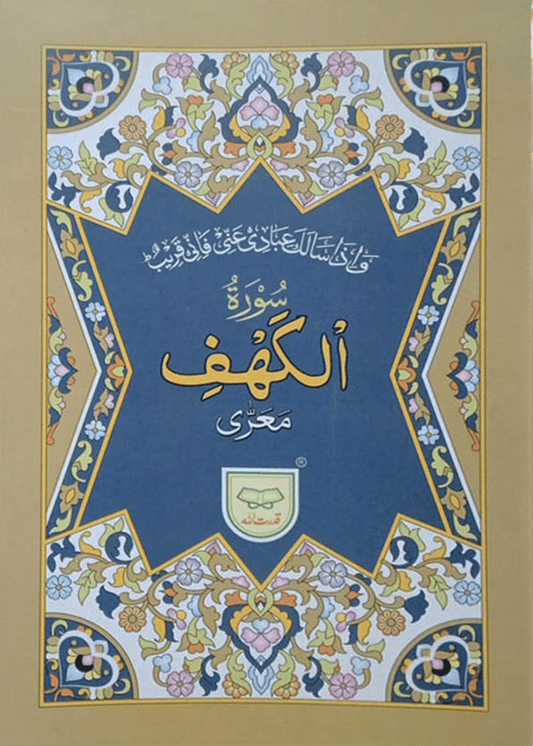 وَإِذَا سَأَلَكَ عِبَادِیْ عَنِّیْ فَاِنِّیْ قَرِیْبٌ ؕ
سُوْرَةُ
اَلْكَهْفِ
مَعَرّٰی
®
قدرت الله